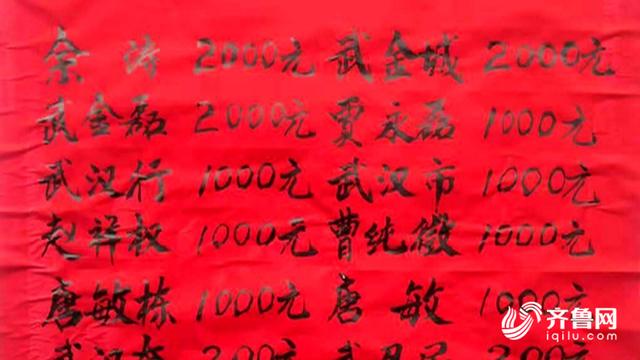 余涛 2000元 武金城 2000元
武金磊 2000元 贾永磊 1000元
武汉行 1000元 武汉市 1000元
赵祥叔 1000元 曹纯俊 1000元
唐敏栋 1000元 唐敏 1000元
齐鲁网
iqilu.com